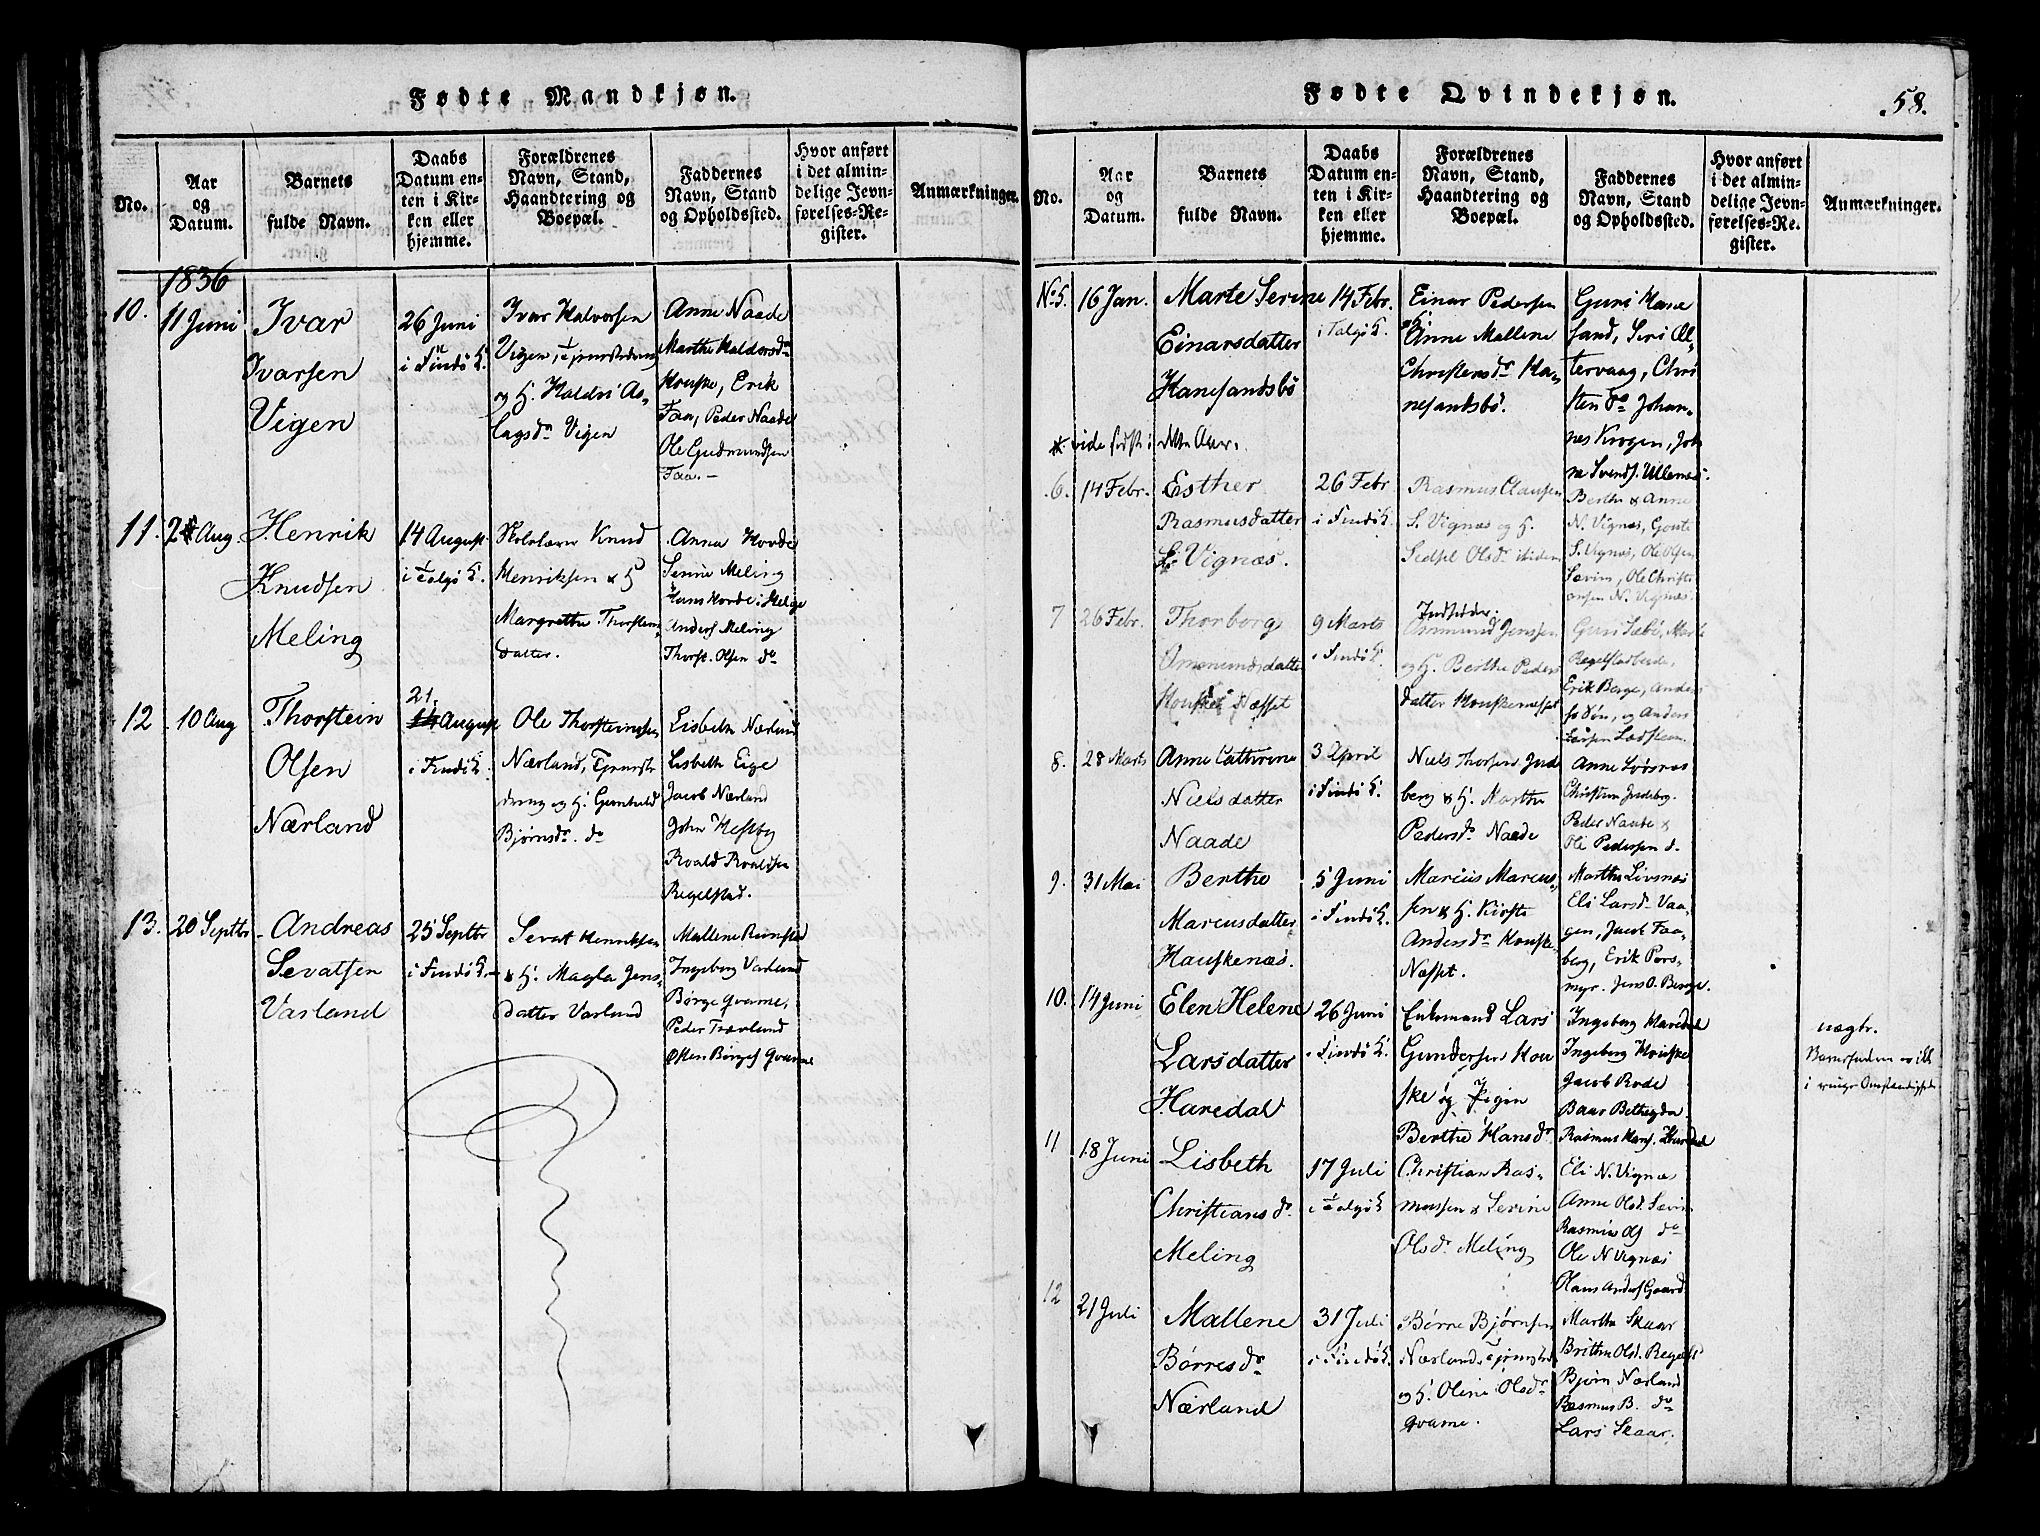 Fødte Mandkjøn.
No.
Aar
og
Datum.
Barnets
fulde Navn.
Daabs
Datum en-
ten i Kir-
ken eller
hjemme.
Forældrenes
Navn, Stand,
Haandtering og
Boepæl.
Faddernes
Navn, Stand
og Opholdssted.
Hvor anført
i det almin-
delige Jevn-
førelses-Re-
gister.
Anmærkninger.
1836
10.
11 Juni
Ivar
Ivarsen
Vigen
26 Juni
i Findö K.
Ivar Halvorsen
Vigen, Tjenestedreng
og H. Haldri As-
lagsdr Vigen
Anne Naade
Marthe Haldorsdr
Houske, Erik
Faa, Peder Naade
Ole Gudmundsen
Faa. -
11.
2 Aug.
Henrik
Knudsen
Meling
14 August
i Talgö K.
Skolelærer Knud
Henriksen & H
Margrethe Thorsteins
datter.
Anna Hovde
Serine Meling
Hans Hovde i Melige
Anders Meling
Thorst. Olsen do
12
10 Aug
Thorstein
Olsen
Nærland
21.
14 August
i Findö K.
Ole Thorsteinsen
Nærland, Tjenst
dreng og H. Gunhild
Bjørnsdr. do
Lisbeth Nærland
Lisbeth Eige
Jacob Nærland
John Hesby
Roald Roaldsen
Regelstad.
13.
20 Septbr
Andreas
Sevatsen
Varland
25 Septbr
i Findö K.
Sevat Henriksen
& H. Magla Jens-
datter Varland
Mallene Rimstad
Ingeborg Varland
Børge Qvame,
Peder Træeland
Østen Børges Qvame
Fødte Qvindekjøn.
58.
No.
Aar
og
Datum.
Barnets
fulde Navn.
Daabs
Datum en-
ten i Kir-
ken eller
hjemme.
Forældrenes
Navn, Stand,
Haandtering og
Boepæl.
Faddernes
Navn, Stand
og Opholdssted.
Hvor anført
i det almin-
delige Jevn-
førelses-Re-
gister.
Anmærkninger.
No 5.
16 Jan.
Marte Serine
Einarsdatter
Hanesandsbö
14 Febr.
i Talgö K.
Einar Pedersen
& H.
Anne Mallene
Christensdr Ha-
nesandsbö.
Guri Hane
sand, Siri Al-
tervaag, Chri
sten do Johan-
nes Krogen, Joh
ne Svends. Ullenes
vide först i dette Aar.
6.
14 Febr.
Esther
Rasmusdatter
S. Vignæs.
26 Febr
i Findö K.
Rasmus Clausen
S. Vignæs og H.
Sidsel Olsdr ibidem
Berthe & Anne
N. Vignæs, Goute
S. Vignæs, Ole Olsen
Sævim, Ole Christi
ansen N. Vignæs.
7
26 Febr.
Thorborg
Ommundsdatter
Houske Næsset
9 Marts
i Findö K.
Indsidder.
Ommund Jenssen
og H. Berthe Peders
datter Houskenæsset
Guri Sæbö, Marte
Regelstadbrede,
Erik Berge, Anders
Larsen Ladsteen.
8.
28 Marts
Anne Cathrine
Nielsdatter
Naade
3 April
i Findö K.
Niels Thorsen Jude
berg & H. Marthe
Pedersdr Naade
Anne Livsnæs
Christen Judeberg.
Peder Naade &
Ole Pedersen d.
9.
31 Mai
Berthe
Marcusdatter
Houskenæs.
5 Juni
i Findö K.
Marcus Marcus-
sen & H. Kirste
Andersdr Houske-
Næsset.
Marthe Livsnæs
Eli Larsd. Vaa-
gen, Jacob Faa-
berg, Erik Pors-
myr. Jens O. Berge.
10.
14 Juni
Elen Helene
Larsdatter
Haredal
26 Juni
i Findö K.
Enkemand Lars
Gundersen Hou
ske og Pigen
Berthe Hansdr.
Ingeborg Haredal
Ingeborg Houske
Jacob Rode
Baar Bethegda
Rasmus Hans. Haredal
uægte.
11
18 Juni
Lisbeth
Christiansdr.
Meling
17 Juli
i Talgö K
Christian Ras-
mussen & Serine
Olsdr. Meling
Eli N. Vignæs
Anne Olsd. Sævim
Rasmus Ols do
Ole N Vignæs
Hans Anders Gaard
12
21 Juli
Mallene
Börresdr.
Nærland
31 Juli
i Findö K.
Børre Bjørnsen
Nærland. Tjenestedr
og H. Oline Olsdr
Qvame.
Martha Skaar
Brithe Olsd. Regelst
Bjørn Nærland
Rasmus B. do
Lars Skaar.